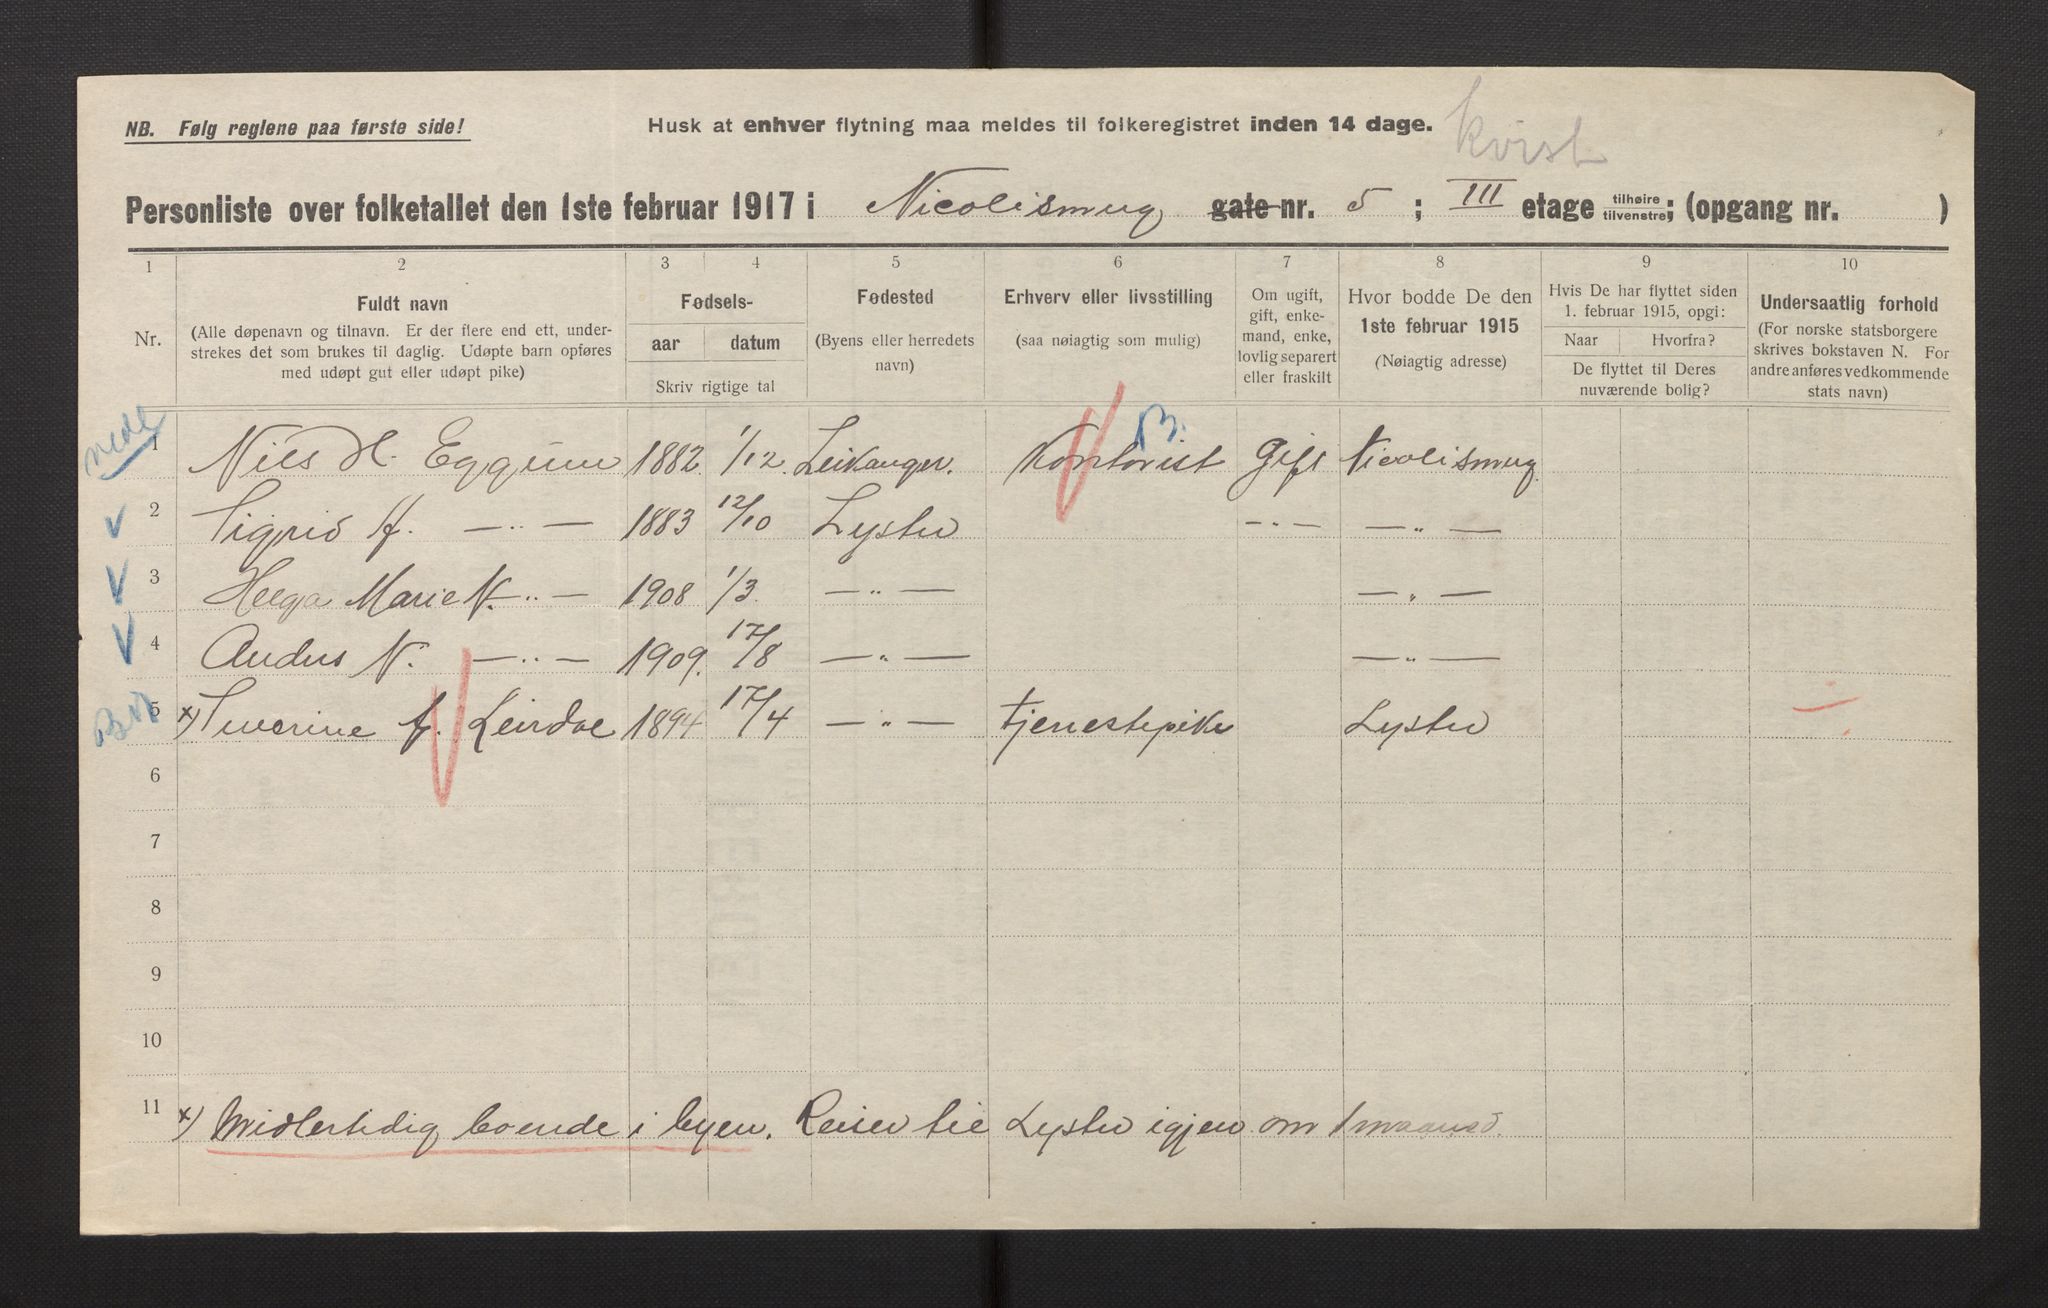 NB. Følg reglene paa første side!
Husk at enhver flytning maa meldes til folkeregistret inden 14 dage.
Kvist
Personliste over folketallet den 1ste februar 1917 i Nicolismug gate nr. 5 ; III etage tilhøire tilvenstre ; (opgang nr. )
1 2 3 4 5 6 7 8 9 10
Nr.
Fuldt navn
(Alle døpenavn og tilnavn. Er der flere end ett, under-
strekes det som brukes til daglig. Udøpte barn opføres
med udøpt gut eller udøpt pike)
Fødsels-
aar datum
Skriv rigtige tal
Fødested
(Byens eller herredets
navn)
Erhverv eller livsstilling
(saa nøiagtig som mulig)
Om ugift,
gift, enke-
mand, enke,
lovlig separert
eller fraskilt
Hvor bodde De den
1ste februar 1915
(Nøiagtig adresse)
Hvis De har flyttet siden
1. februar 1915, opgi:
Naar Hvorfra?
De flyttet til Deres
nuværende bolig?
Undersaatlig forhold
(For norske statsborgere
skrives bokstaven N. For
andre anføres vedkommende
stats navn)
nede
B.
1 Nils H. Eggum 1882 1/12. Leikanger. Kontorist Gift Nicolismug
2 Sigrid A. —〃— 1883 12/10 Lyster —〃— —〃—
3 Helga Marie N. —〃— 1908 1/3. —〃— —〃—
4 Anders N. —〃— 1909. 17/8 —〃— —〃—
5 x) Severine A. Leirdøe 1894 17/4 —〃— Tjenestepike Lyster
6
7
8
9
10
11 x) Midlertidig boende i byen. Reiser til Lyster igjen om 1 maaned.